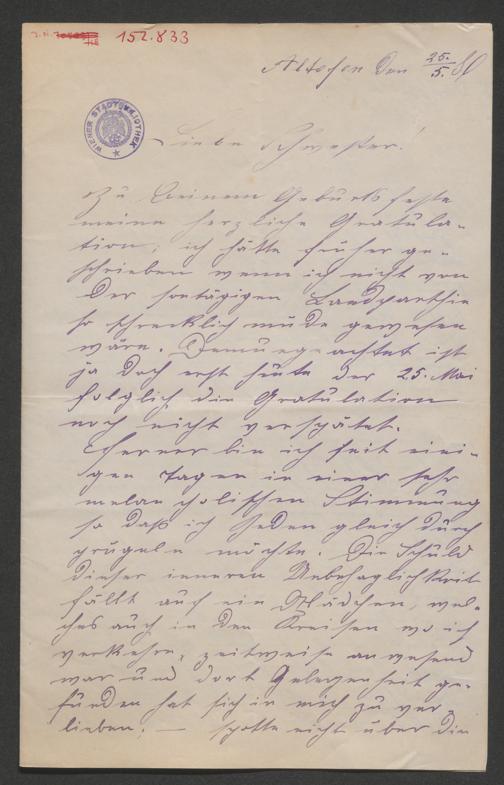 152.833
Altofen den 25./5. 80
WIENER STADTBIBLIOTHEK
Liebe Schwester!
Zu Deinem Geburtsfeste
meine herzliche Gratula-
tion; ich hätte früher ge-
schrieben wenn ich nicht von
der sontägigen Landparthie
so schrecklich müde gewesen
wäre. Demungeachtet ist
ja doch erst heute der 25. Mai
folglich die Gratulation
noch nicht verspätet.
Ferner bin ich seit eini-
gen Tagen in einer sehr
melancholischen Stimmung
so daß ich Jeden gleich durch
prügeln möchte. Die Schuld
dieser inneren Unbehaglichkeit
fällt auf ein Mädchen, wel-
ches auch in den Kreisen wo ich
verkehre, zeitweise anwesend
war und dort Gelegenheit ge-
funden hat sich in mich zu ver-
lieben. — spotte nicht über die